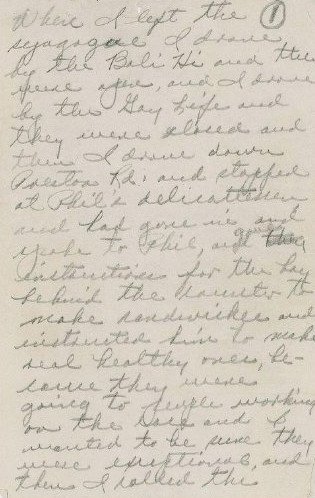 Where I left the ①
synagogue I drove
by the Bali Hi and they
were open, and I drove
by the Gay Life and
they were closed and
then I drove down
Preston Rd. and stopped
at Phil's delicatessen
and had gone in and
spoke to Phil, and gave
instructions for the boy
behind the counter to
make sandwiches and
instructed him to make
real healthy ones, be-
cause they were
going to people working
on the and I
wanted to be sure they
were exceptional, and
then I called the